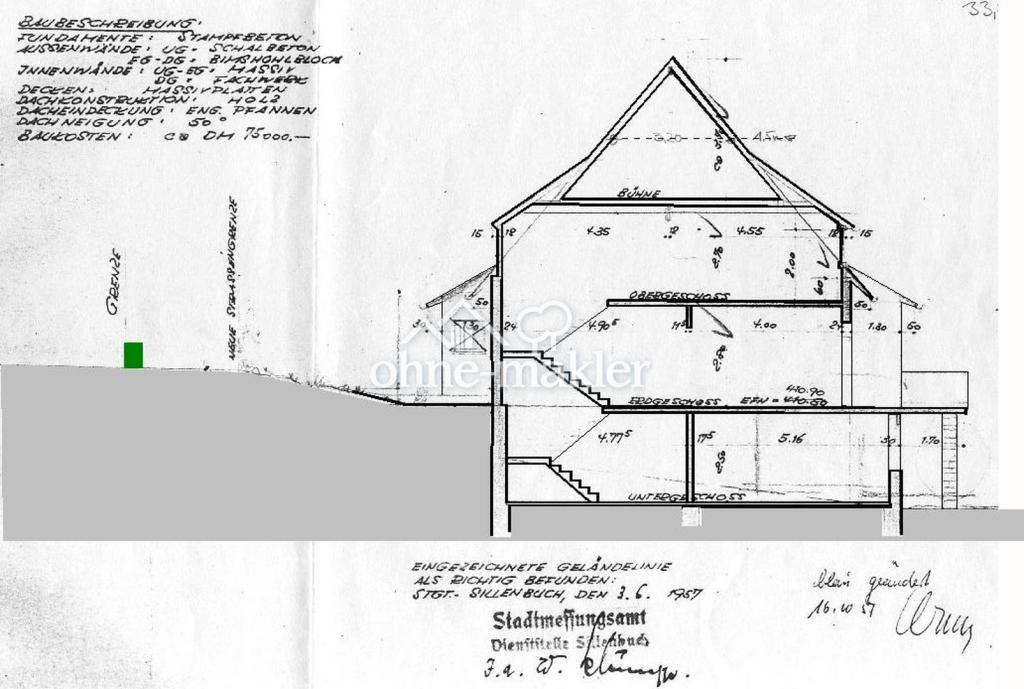 33,
BAUBESCHREIBUNG:
FUNDAMENTE: STAMPFBETON
AUSSENWÄNDE: UG= SCHALBETON
EG-DG= BIMSHOHLBLOCK
INNENWÄNDE: UG-EG= MASSIV
DG= FACHWERK
DECKEN: MASSIVPLATTEN
DACHKONSTRUKTION: HOLZ
DACHEINDECKUNG: ENG. PFANNEN
DACHNEIGUNG: 50°
BAUKOSTEN: CA DM 75000.—
GRENZE
NEUE STRASSENGRENZE
BÜHNE
15 18 4.35 12 4.55 18 15
2.00
60
OBERGESCHOSS
50 50
30 1.30 24 4.90⁵ 11⁵ 4.00 24 1.80 50
ohne-makler
410.90
ERDGESCHOSS EFH = 410.60
4.77⁵ 17⁵ 5.16 30 1.70
UNTERGESCHOSS
EINGEZEICHNETE GELÄNDELINIE
ALS RICHTIG BEFUNDEN:
STGT.- SILLENBUCH, DEN 3.6. 1957
Stadtmessungsamt
Dienststelle Sillenbuch
J.a. W.
blau geändert
16.10 57